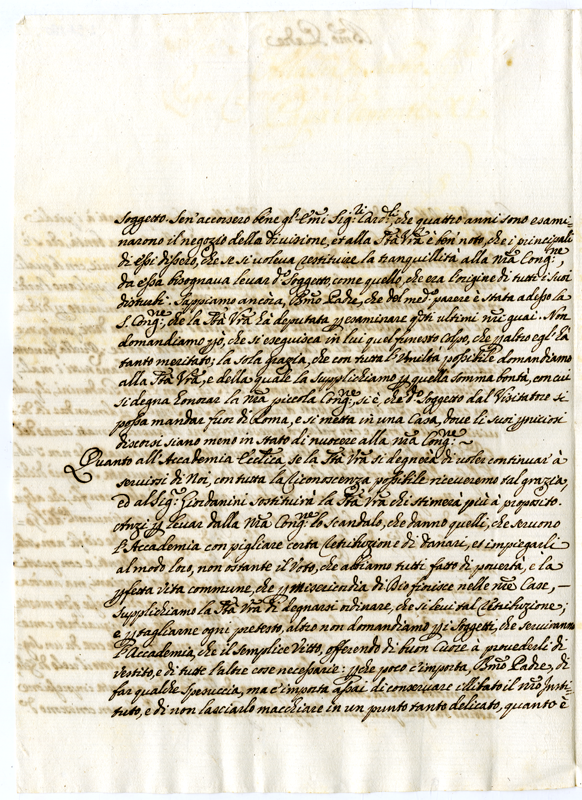 Soggetto. Sen'accorsero bene gl'Emi Sig.ri Card.li che quattro anni sono esami=
narono il negozio della Divisione, et alla Stà Vrà è ben noto, che i principali
di essi dissero, che se si voleva restituire la tranquillità alla nrà Cong.ne
da essa bisognava levar d.o Soggetto, come quello, che era l'origine di tutti i suoi
disturbi. Sappiamo ancora, Bmo Padre, che del med.o parere è stata adesso la
S. Cong.ne, che la Stà Vrà hà deputata p esaminare q̃sti ultimi nrì guai. Non
domandiamo pò, che si eseguisca in lui quel funesto colpo, che p altro egl'hà
tanto meritato; la sola grazia, che con tutta l'Umiltà possibile domandiamo
alla Stà Vrà, e della quale la supplichiamo p quella somma bontà, con cui
si degna honorar la nrà piccola Cong.ne, si è, che d.o Soggetto dal Visitatore si
possa mandar fuor di Roma, e si metta in una Casa, dove li suoi pniciosi
discorsi siano meno in stato di nuocere alla nrà Cong.ne ~
Quanto all'Accademia Eccl.ica, se la Stà Vrà si degnerà di voler continuar à
servirsi di Noi, con tutta la riconoscenza possibile riceveremo tal grazia,
ed al Sig.r Giordanini sostituirà la Stà Vrà chi stimerà più à proposito.
Anzi p levar dalla nrà Cong.ne lo scandalo, che danno quelli, che servono
l'Accademia con pigliare certa retribuzione di danari, et impiegarli
al modo loro, non ostante il Voto, che abbiamo tutti fatto di povertà, e la
pfetta vita commune, che p misericordia di Dio fiorisce nelle nrè Case, —
supplichiamo la Stà Vrà di degnarsi ordinare, che si levi tal retribuzione;
e p tagliarne ogni pretesto, altro non domandiamo p i Soggetti, che serviranno
l'Accademia, che il semplice Vitto, offerendo di buon Cuore à provederli di
Vestito, e di tutte l'altre cose necessarie: p che poco c'importa, Bmo Padre, di
far qualche spesuccia, ma c'importa assai di conservare illibato il nrò Insti=
tuto, e di non lasciarlo macchiare in un punto tanto delicato, quanto è